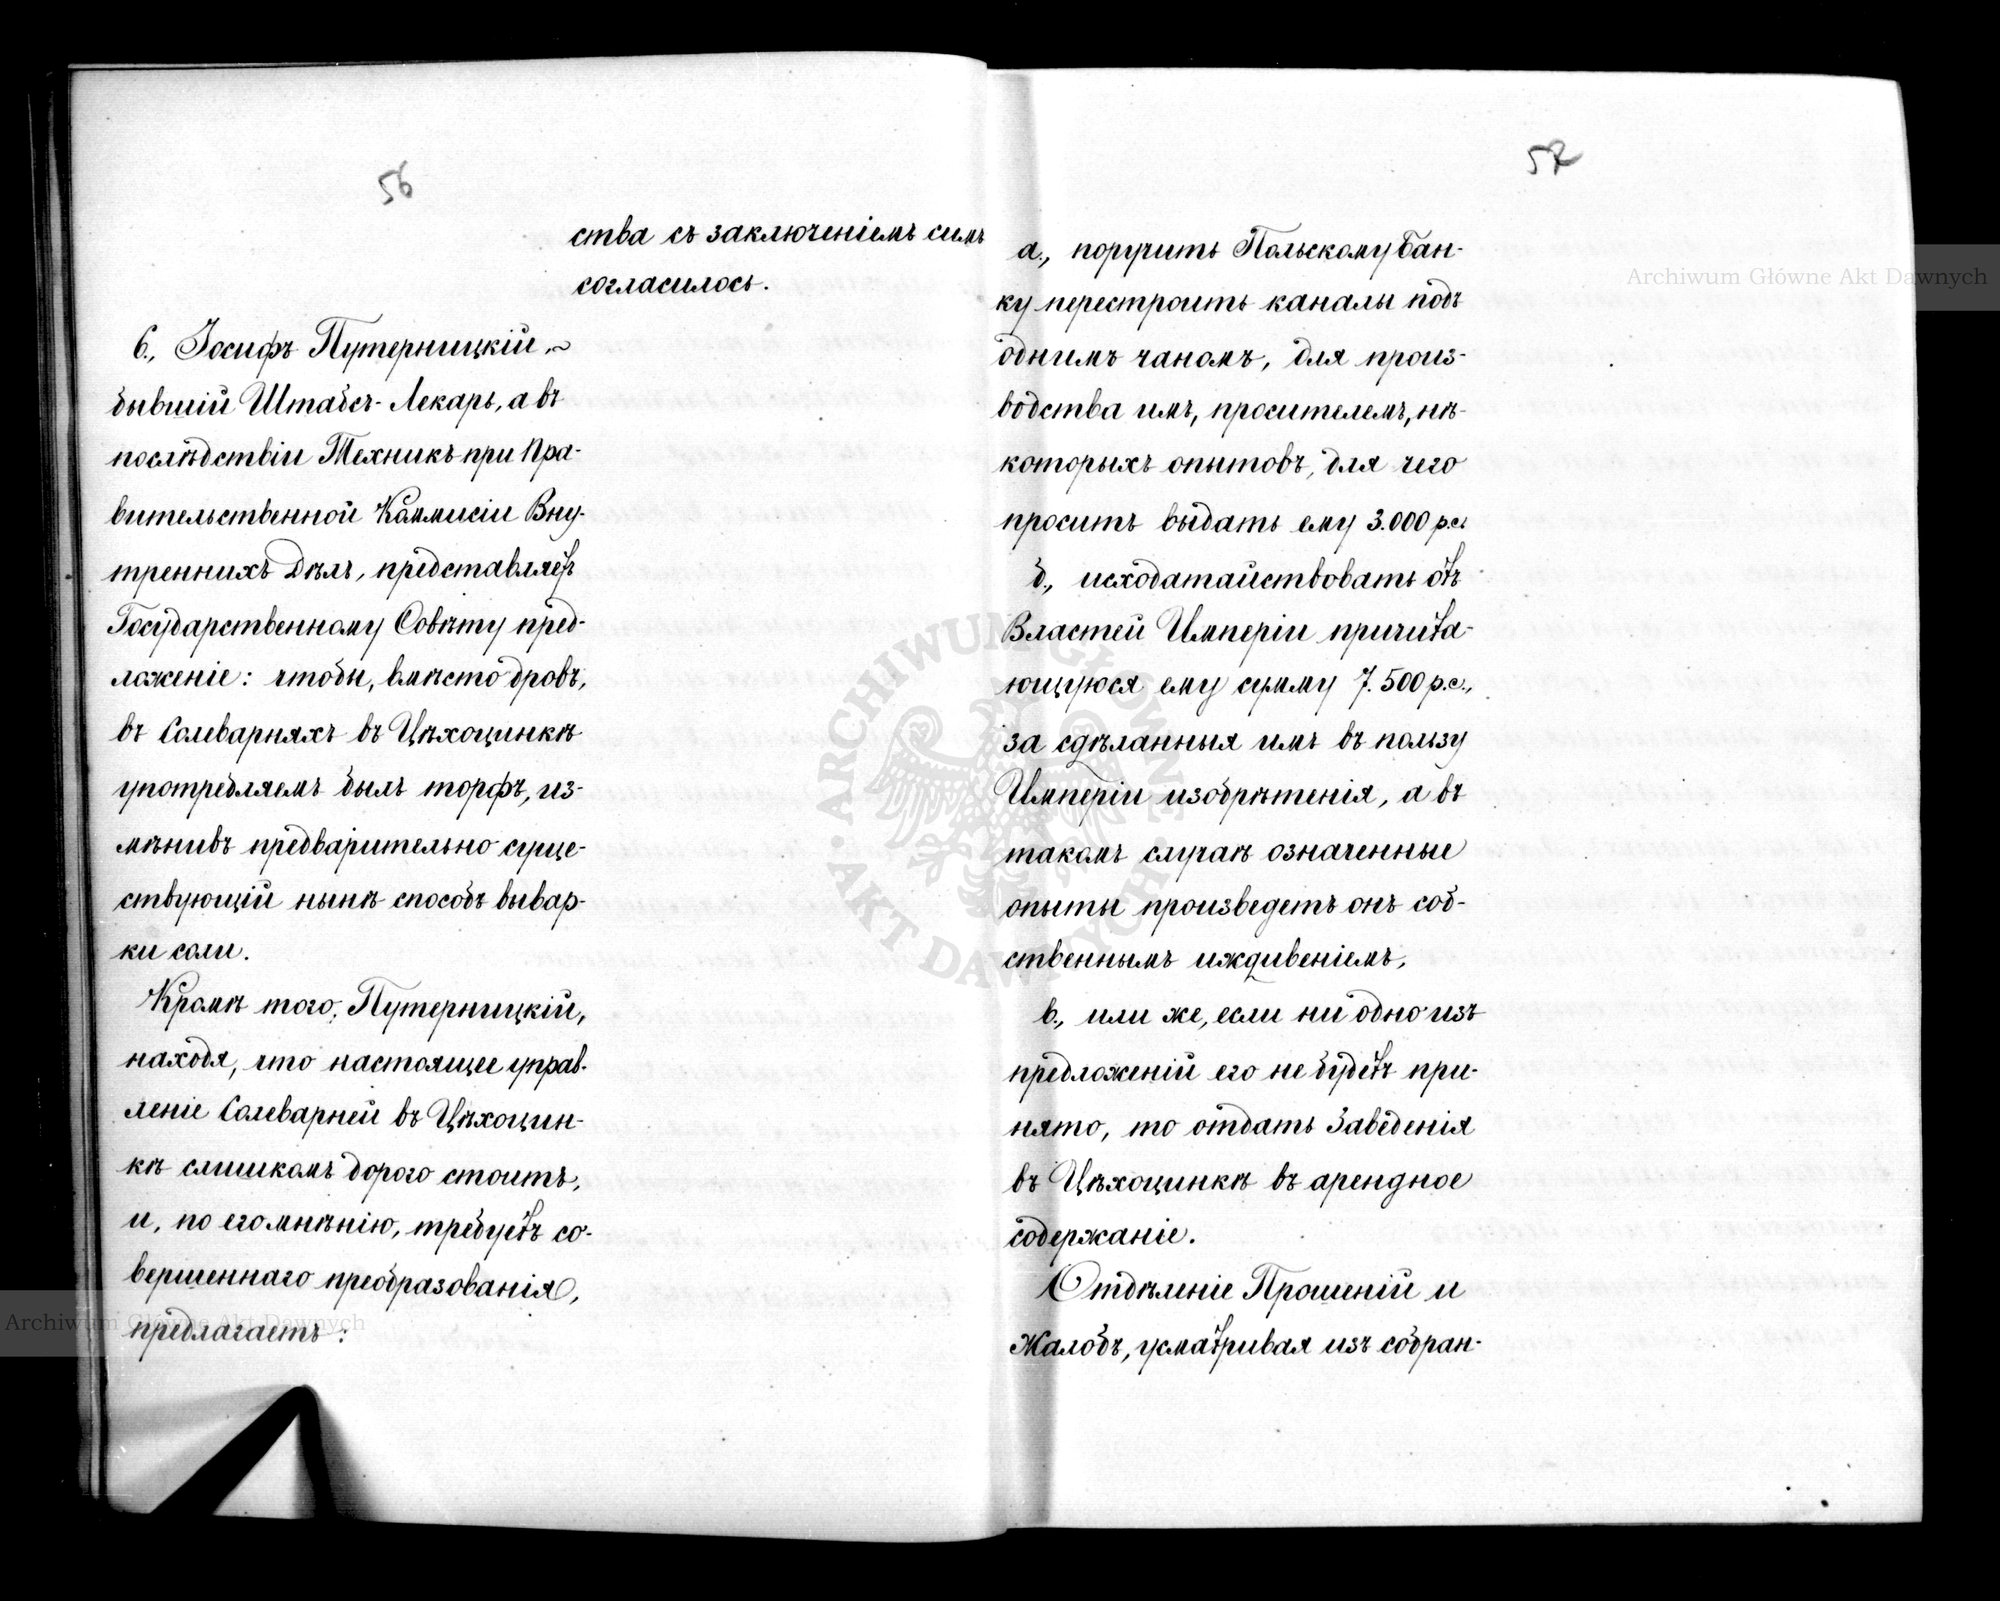 56
ства съ заключеніемъ симъ
согласилось.
6., Іосифъ Путерницкій,
бывшій Штабсъ-Лекарь, а въ
послѣдствіи Техникъ при Пра-
вительственной Коммисіи Вну-
треннихъ Дѣлъ, представляетъ
Государственному Совѣту пред-
ложеніе: чтобы, вмѣсто дровъ,
въ Солеварняхъ въ Цѣхоцинкѣ
употребляемъ былъ торфъ, из-
мѣнивъ предварительно суще-
ствующій нынѣ способъ вывар-
ки соли.
Кромѣ того, Путерницкій,
находя, что настоящее управ-
леніе Солеварней въ Цѣхоцин-
кѣ слишкомъ дорого стоитъ,
и, по его мнѣнію, требуетъ со-
вершеннаго преобразованія,
предлагаетъ:
57
а., поручить Польскому Бан-
ку перестроить каналы подъ
однимъ чаномъ, для произ-
водства имъ, просителемъ, нѣ-
которыхъ опытовъ, для чего
проситъ выдать ему 3.000 р.с.
б., исходатайствовать отъ
Властей Имперіи причита-
ющуюся ему сумму 7.500 р.с.,
за сдѣланныя имъ въ пользу
Имперіи изобрѣтенія, а въ
такомъ случаѣ означенные
опыты произведетъ онъ соб-
ственнымъ иждивеніемъ,
в., или же, если ни одно изъ
предложеній его не будетъ при-
нято, то отдать Заведенія
въ Цѣхоцинкѣ въ арендное
содержаніе.
Отдѣленіе Прошеній и
Жалобъ, усматривая изъ собран-
ARCHIWUM GŁÓWNE AKT DAWNYCH
Archiwum Główne Akt Dawnych
Archiwum Główne Akt Dawnych